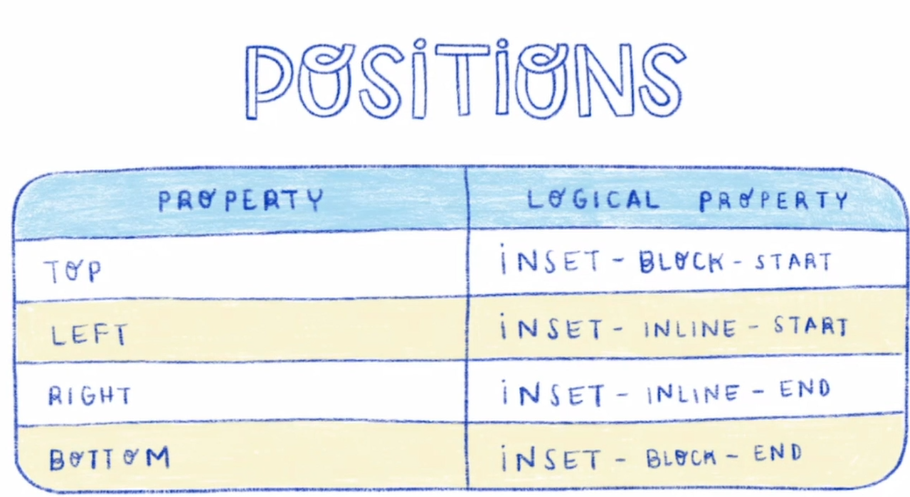 POSITIONS
PROPERTY LOGICAL PROPERTY
TOP INSET - BLOCK - START
LEFT INSET - INLINE - START
RIGHT INSET - INLINE - END
BOTTOM INSET - BLOCK - END